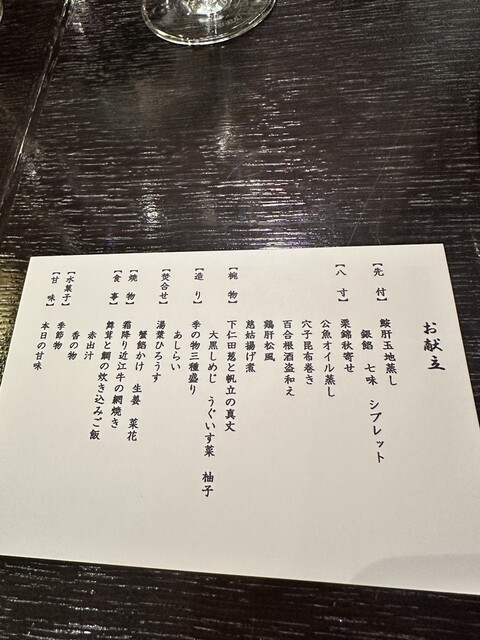 お献立
【先 付】 鮟肝玉地蒸し
銀餡 七味 シブレット
【八 寸】 栗錦秋寄せ
公魚オイル蒸し
穴子昆布巻き
百合根酒盗和え
鶏肝松風
慈姑揚げ煮
【椀 物】 下仁田葱と帆立の真丈
大黒しめじ うぐいす菜 柚子
【造 り】 季の物三種盛り
あしらい
【焚合せ】 湯葉ひろうす
蟹餡かけ 生姜 菜花
【焼 物】 霜降り近江牛の網焼き
【食 事】 舞茸と鯛の炊き込みご飯
赤出汁
香の物
【水菓子】 季節物
【甘 味】 本日の甘味